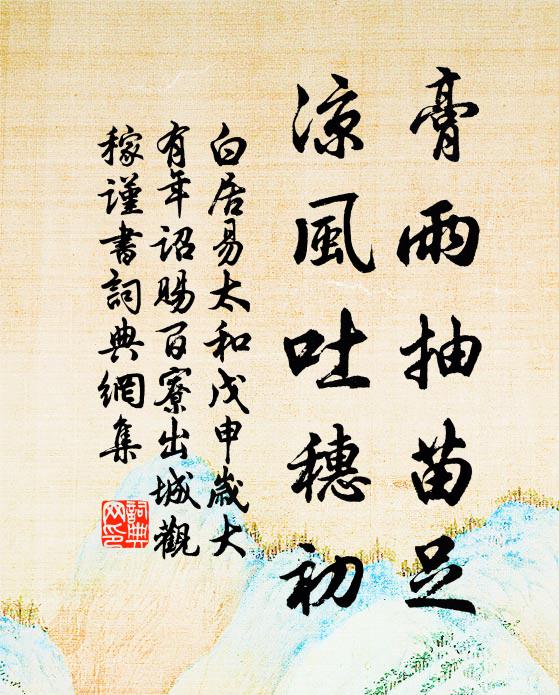 膏雨抽苗足
涼風吐穗初
白居易太和戊申歲大
有年詔賜百寮出城觀
稼謹書詞典網集
詞典
网印